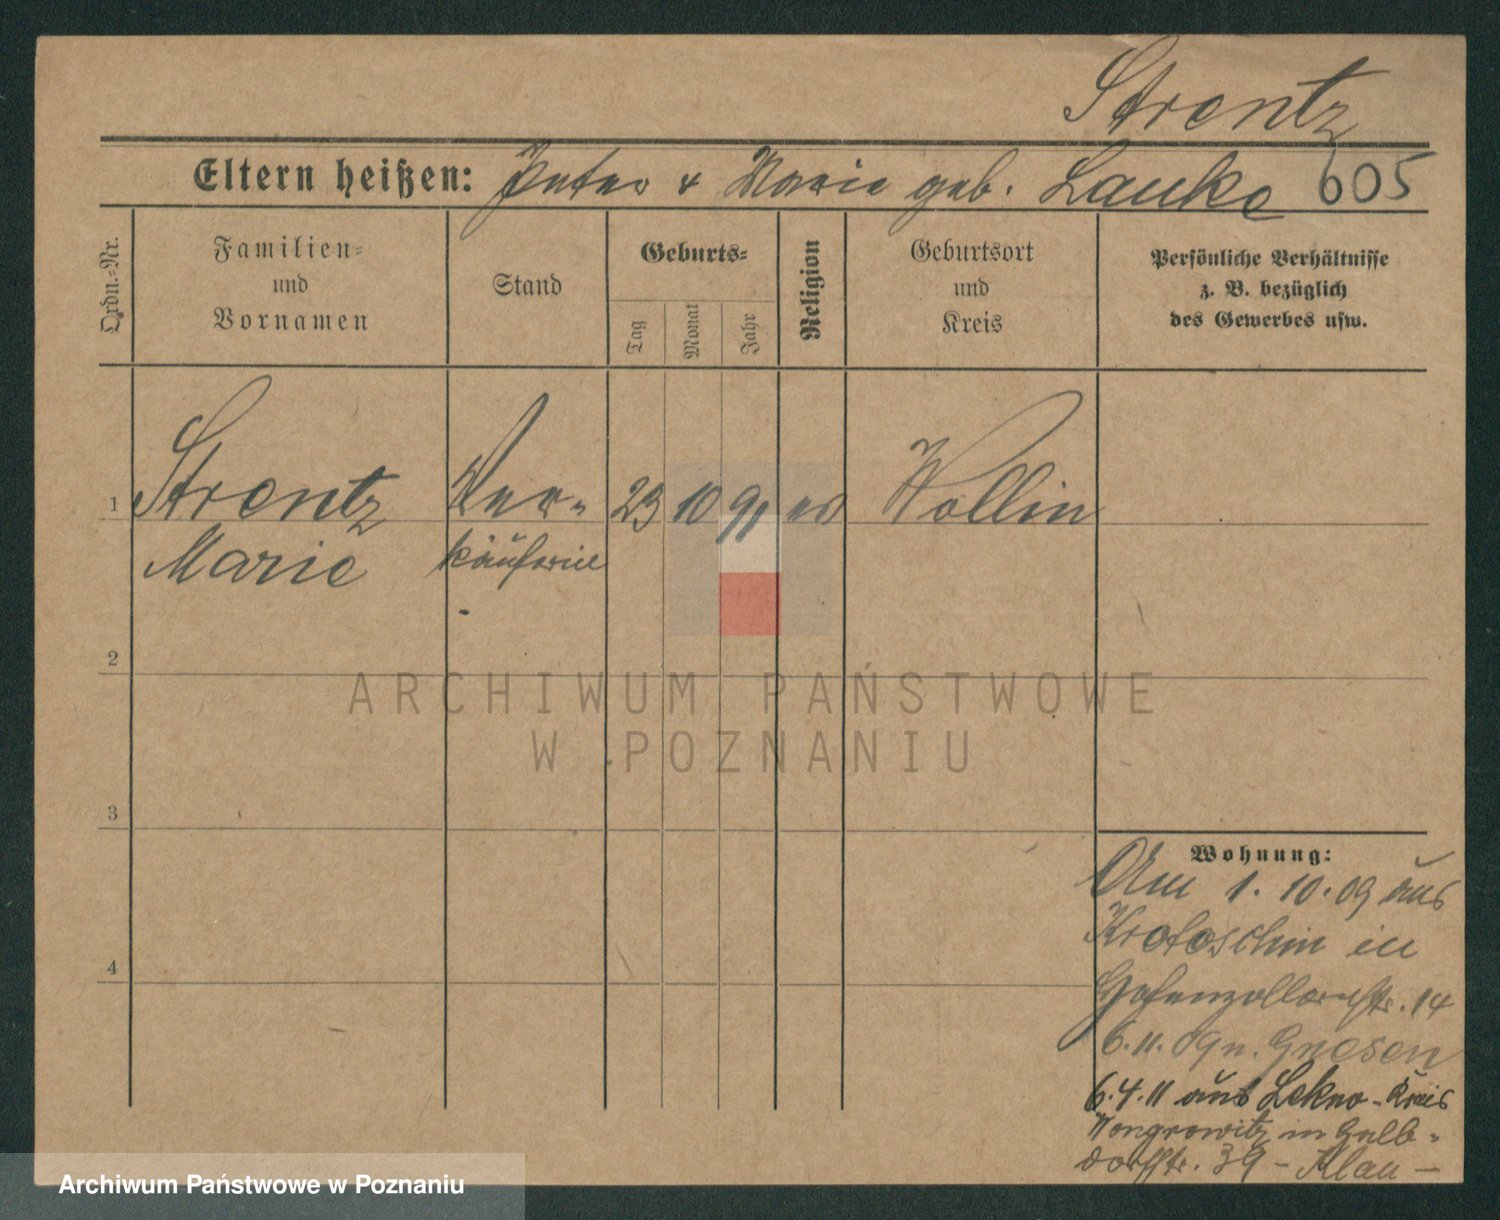 Strentz
Eltern heißen: Peter & Marie geb. Lauke 605
Ordn.=Nr.
Familien=
und
Vornamen
Stand
Geburts=
Tag
Monat
Jahr
Religion
Geburtsort
und
Kreis
Persönliche Verhältnisse
z. B. bezüglich
des Gewerbes usw.
1 Strentz Ver= 23 10 91 ev Wollin
Marie käuferin
2
ARCHIWUM PAŃSTWOWE
W POZNANIU
3
Wohnung:
Am 1.10.09 aus
Krotoschin in
Hohenzollernstr. 14
6.11.09 n. Gnesen
4
6.4.11 aus Lekno - Kreis
Wongrowitz in Halb=
dorfstr. 39 - Klau -
Archiwum Państwowe w Poznaniu